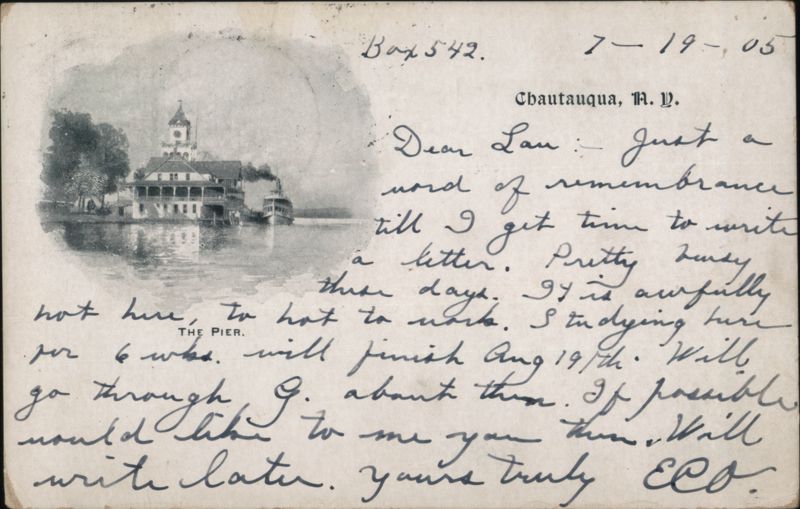 Box 542. 7 - 19 - 05
Chautauqua, N. Y.
Dear Lau :- Just a
word of remembrance
till I get time to write
a letter. Pretty busy
these days. It is awfully
hot here, to hot to work. Studying here
for 6 wks. will finish Aug 19/th. Will
THE PIER.
go through G. about then. If possible
would like to see you then. Will
write later. Yours truly ECO.